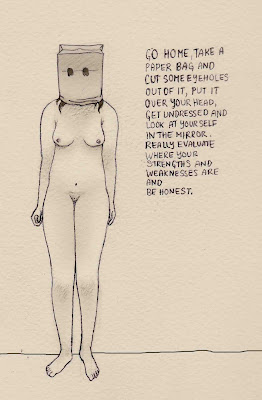 GO HOME, TAKE A
PAPER BAG AND
CUT SOME EYEHOLES
OUT OF IT, PUT IT
OVER YOUR HEAD,
GET UNDRESSED AND
LOOK AT YOURSELF
IN THE MIRROR.
REALLY EVALUATE
WHERE YOUR
STRENGTHS AND
WEAKNESSES ARE
AND
BE HONEST.